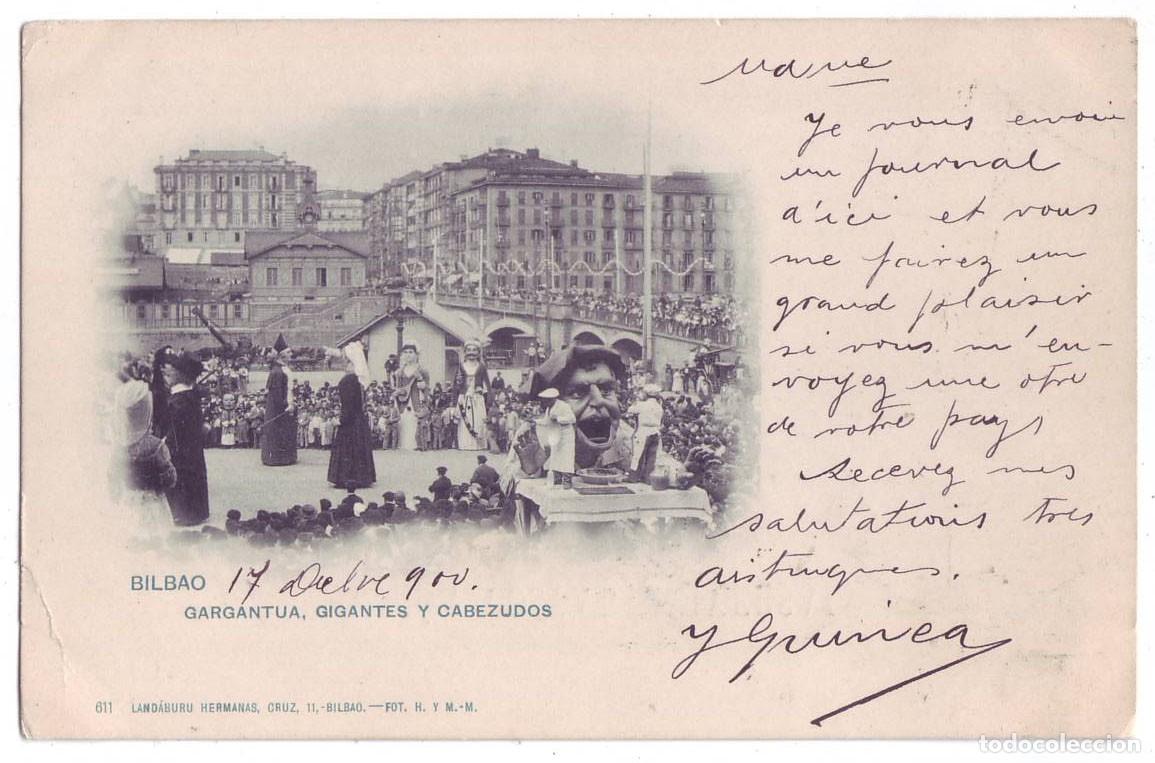 Je vous envoie
un journal
d'ici et vous
me fairez un
grand plaisir
si vous m'en-
voyez une otre
de votre pays
Recevez mes
salutations tres
distingues.
Y Guinea
BILBAO 17 Dcbre 900.
GARGANTUA, GIGANTES Y CABEZUDOS
611 LANDÁBURU HERMANAS, CRUZ, 11,-BILBAO.—FOT. H. Y M.-M.
todocoleccion